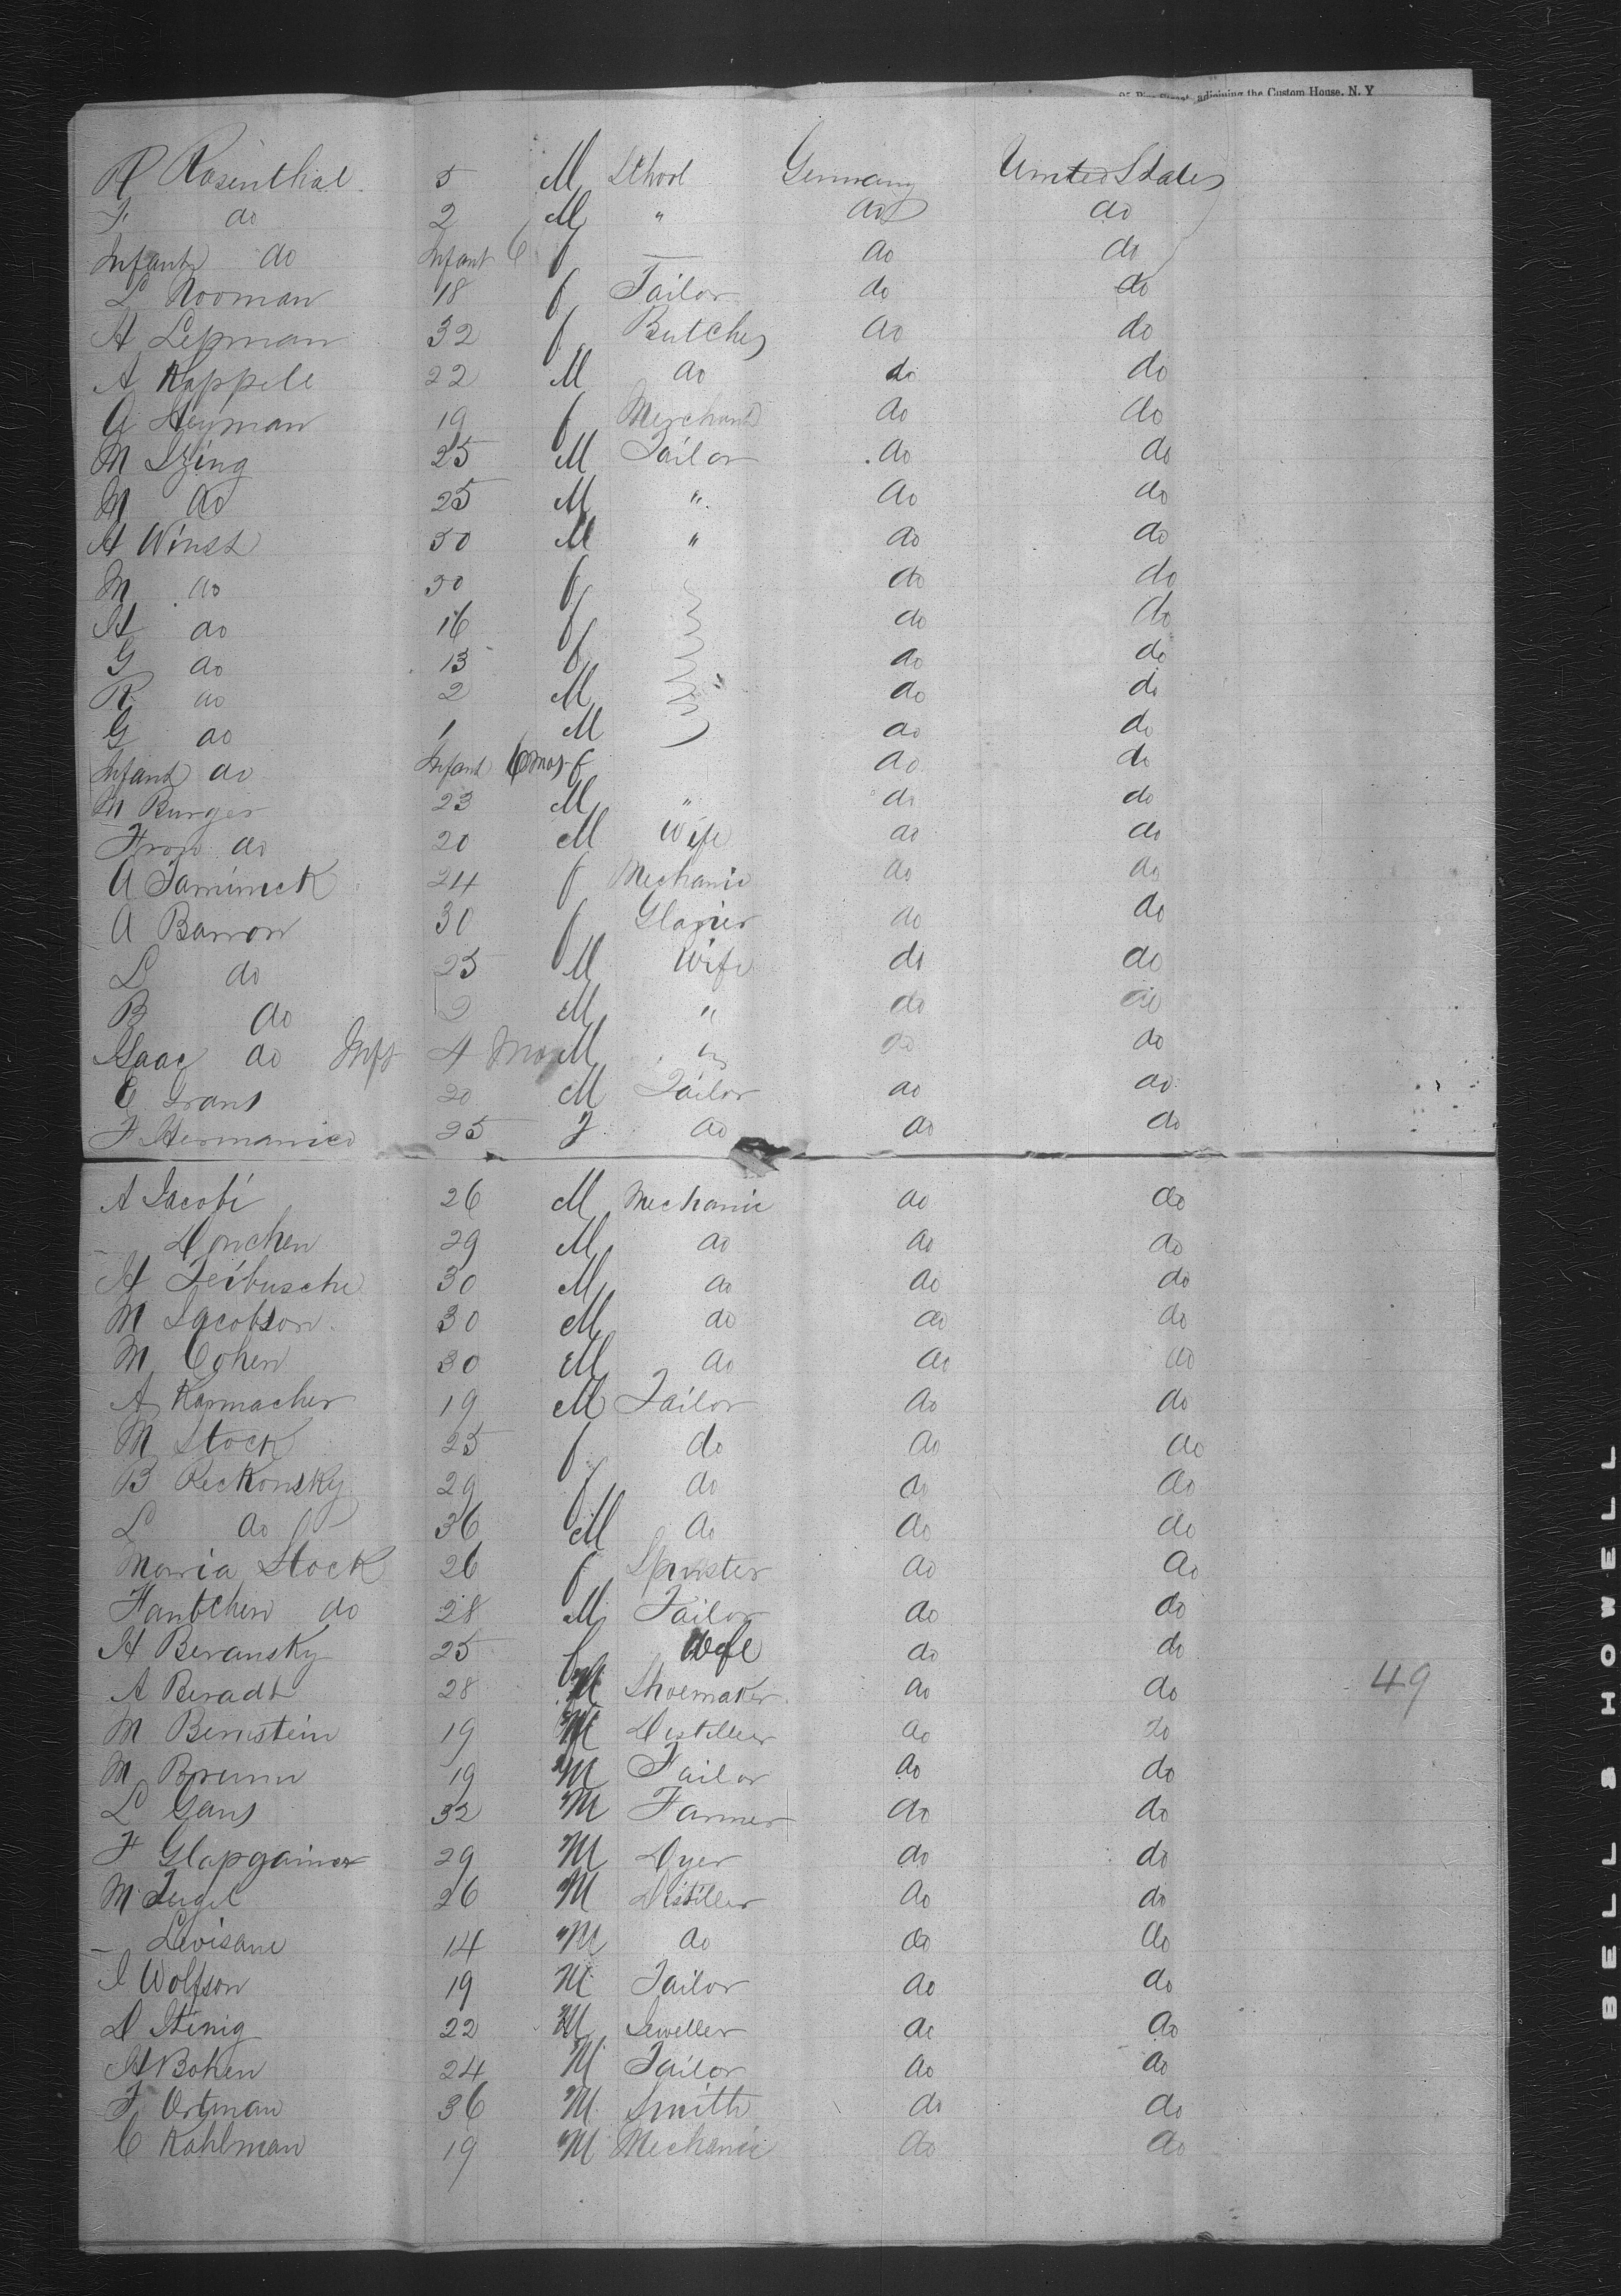 adjoining the Custom House, N. Y
R Rosenthal 5 M School Germany United States
F. do 2 M " do do
Infant do Infant 6 f — do do
L Nooman 18 f Tailor do do
H Lepman 32 f Butcher do do
A Kappele 22 M do do do
A Heyman 19 f Merchant do do
M Izing 25 M Tailor do do
M do 25 M " do do
H Winst 30 M " do do
M do 30 f do do
H do 16 f do do
G do 13 f do do
R do 2 M do do
G do 1 M do do
Infant do Infant 6 mos f do do
M Burger 23 M " do do
Frow do 20 M Wife do do
A Jamimek 24 f Mechanic do do
A Barron 30 f Glazier do do
L do 25 M Wife do do
B do 2 M " do do
Isaac do Inft 4 Mos M " do do
C Grans 20 M Tailor do do
F Hermanico 25 f do do do
A Jacobi 26 M Mechanic do do
— Donchen 29 M do do do
H Leibusche 30 M do do do
M Jacobson 30 M do do do
M Cohen 30 M do do do
A Karmacher 19 M Tailor do do
M Stock 25 f do do do
B Reckonsky 29 f do do do
L do 36 M do do do
Maria Stock 26 f Spinster do do
Hantchen do 28 M Tailor do do
H Beransky 25 f Wife do do
A Beradt 28 M Shoemaker do do
49
M Bernstein 19 M Distiller do do
M Breunn 19 M Tailor do do
L Gans 32 M Farmer do do
F Glapgainer 29 M Dyer do do
M Zugel 26 M Distiller do do
— Levisane 14 M do do do
I Wolfson 19 M Tailor do do
D Hinig 22 M Jeweller do do
H Bohen 24 M Tailor do do
F Ortman 36 M Smith do do
C Kahlman 19 M Mechanic do do
BELL & HOWELL